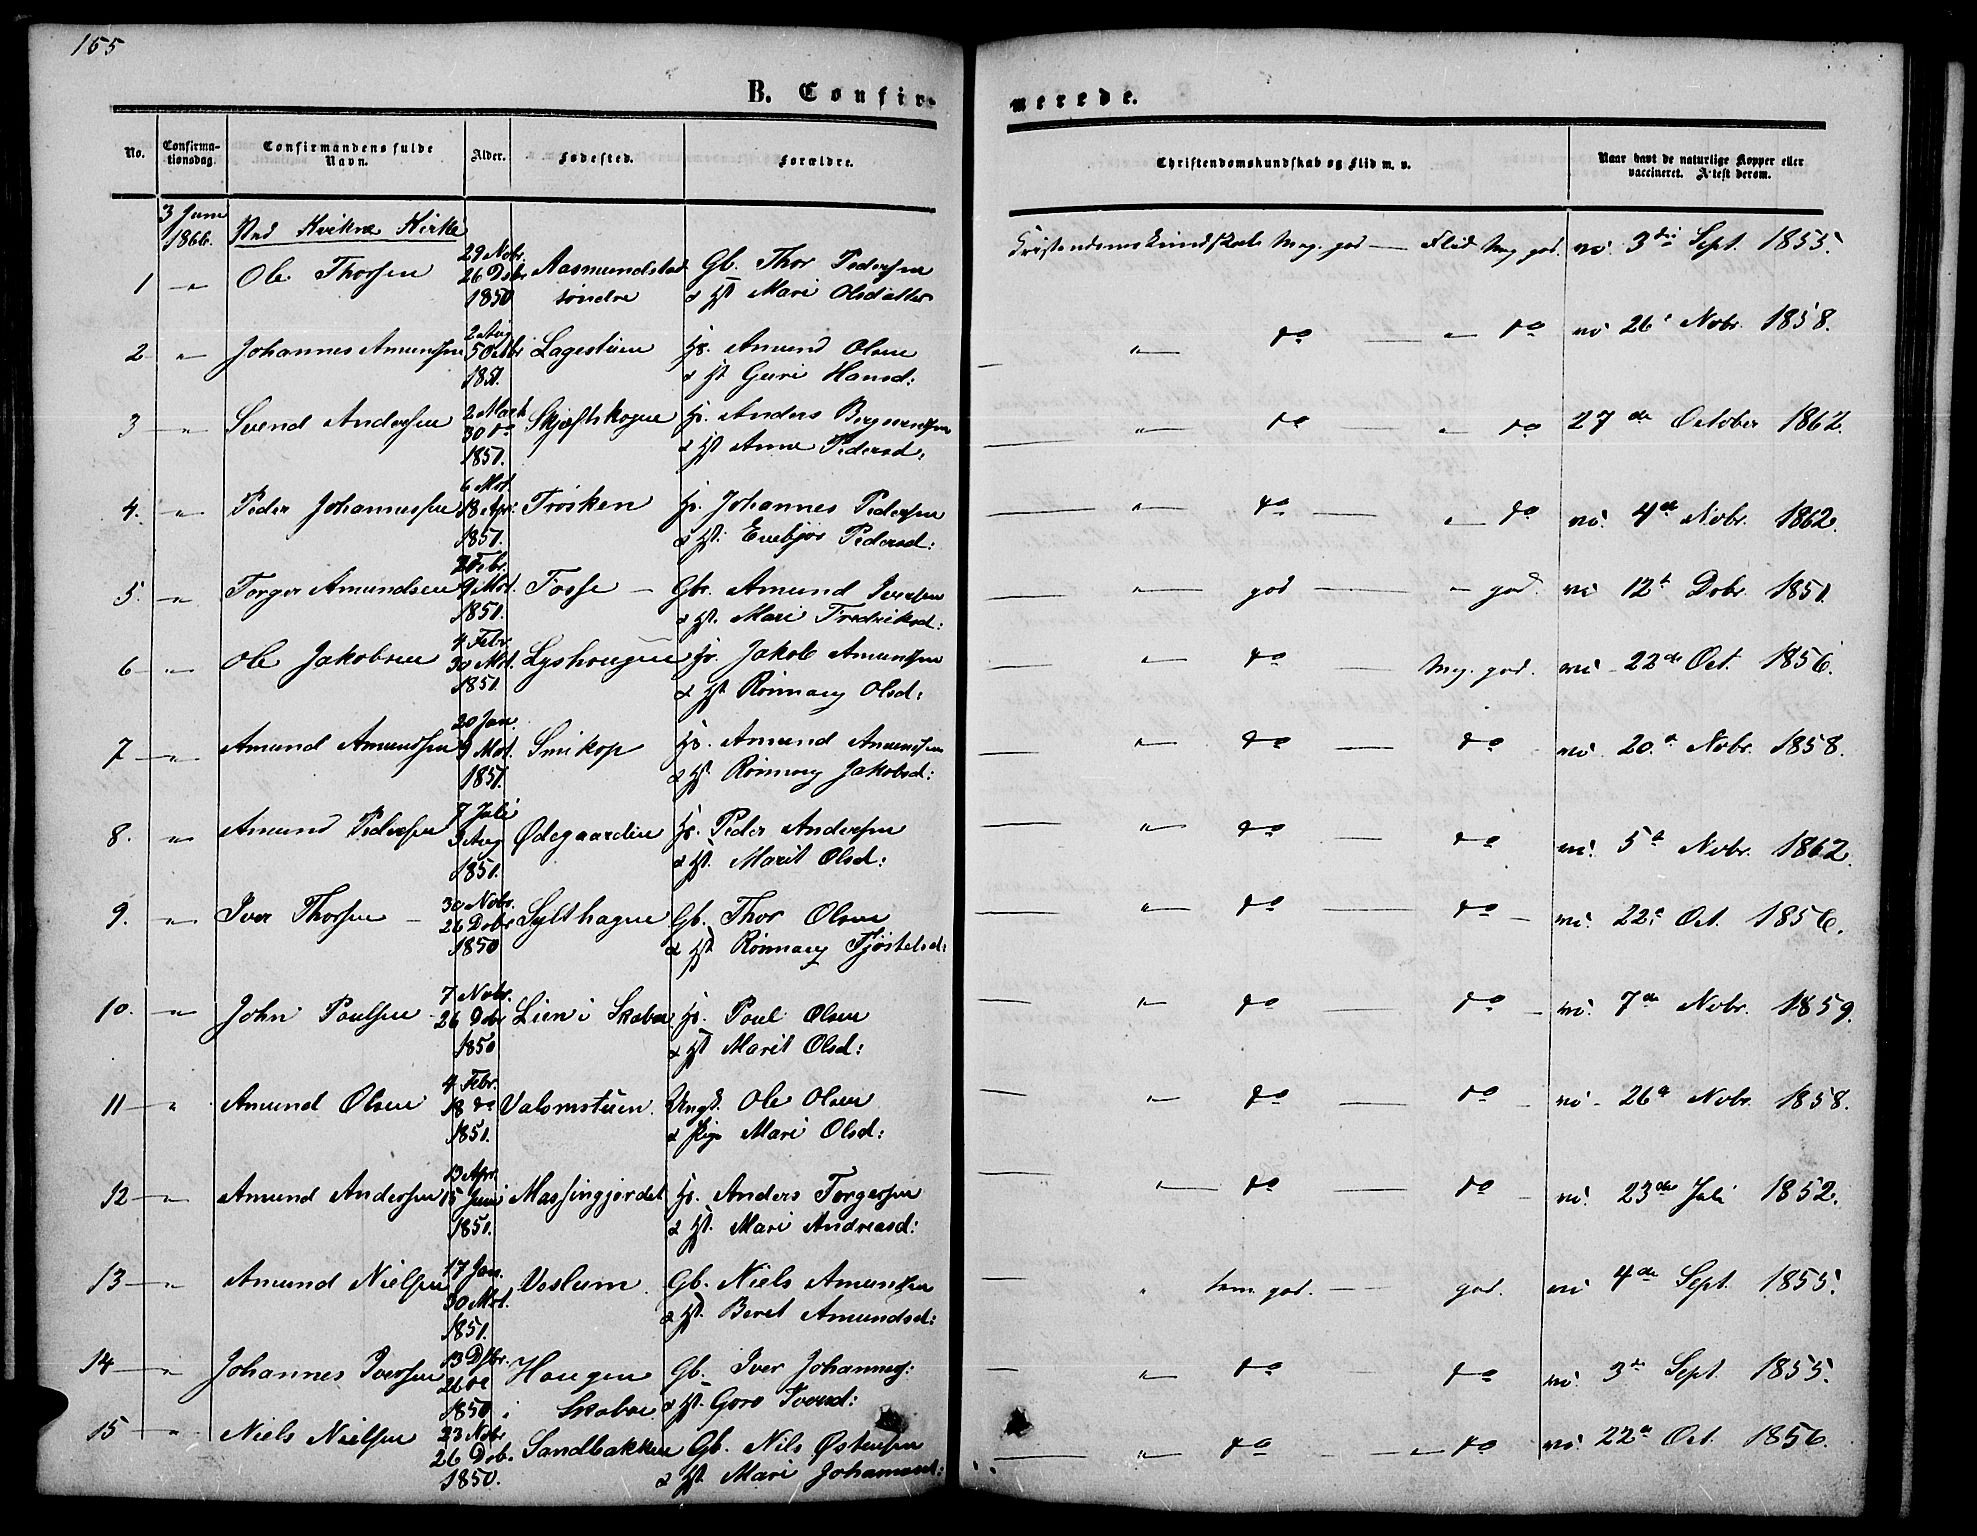 155
B. Confir-
merede.
No. Confirma-tionsdag. Confirmandens fulde Navn. Alder. Fødested. Forældre. Christendomskundskab og Flid m. v. Naar havt de naturlige Kopper eller vaccineret. Attest derom.
3 Juni 1866. Ved Kvikne Kirke
1 " Ole Thorsen 29 Nobr. 26 Dbr. 1850 Aasmundstad søndre Gb. Thor Pedersen & Hst. Mari Olsdatter Kristendomskundskab Meg. god — Flid Meg god. vc. 3die Sept. 1855.
2 " Johannes Amundsen 2 Aug 5 Octbr 1851. Lagestuen Hs. Amund Olsen & Hst Guri Hansd: " do — " do vc 26 Nobr. 1858.
3 " Svend Andersen 2 Marts 30 do 1851. Skjæftskogen Hs. Anders & Hst Anne Pedersd: " do — " do 27de October 1862.
4. " Peder Johannessen 6 Mrt. 18 Apr: 1851. Trosken Hs. Johannes Pedersen & Hst. Pedersd: " do — " do vc. 4de Nobr. 1862.
5. " Torger Amundsen 2 Febr. 9 Mrt. 1851. Fosse — Gbr. Amund Iversen & Hst. Mari Fredriksd: " god — " god. vc 12te Dobr. 1851.
6 " Ole Jakobsen 4 Febr. 30 Mrt. 1851. Lyshougen Hs. Jakob Amundsen & Hst Rønnaug Olsd: " do — Meg. god. vc 22de Oct. 1856.
7 " Amund Amundsen 20 Jan 9 Mrt. 1851. Smikop Hs. Amund Amundsen & Hst. Rønnaug Jakobsd: " do — do vc. 20. Nobr. 1858.
8. " Amund Pedersen 7 Juli 3 Aug 1851. Ødegaarden Hs. Peder Andersen & Hst. Marit Olsd: " do — do vc. 5te Nobr. 1862.
9. " Iver Thorsen — 30 Nobr. 26 Dobr 1850 Sylthagen Gb. Thor Olsen & Hst Rønnaug Tjøstelsd: " do — do — vc. 22. Oct. 1856.
10. " John Poulsen 7 Nobr. 26 Dobr 1850 Lien i Skabu Hs. Poul Olsen & Hst Marit Olsd: " do — do — vc. 7de Nobr. 1859.
11 " Amund Olsen 4 Febr. 18 do 1851. Valomstuen. Ungk. Ole Olsen & Pige Mari Olsd: " do — do — vc - 26 Nobr. 1858.
12 " Amund Andersen 13 Apr. 15 Juni 1851. Massingjordet Hs. Anders Torgersen & Hst. Mari Andreasd: " do — do — vc. 23de Juli 1852.
13 " Amund Nielsen 17 Jan. 30 Mrt. 1851. Voslum. Gb. Niels Amundsen & Hst. Beret Amundsd: " tem. god. — god. vc 4de Sept. 1855.
14 " Johannes Iversen 13 Dsbr. 26 do 1850 Hougen i Skabu Gb. Iver Johannes: & Hst. Goro Iversd: " do — do vc. 3de Sept. 1855.
15 " Niels Nielsen 23 Nobr 26 Dob. 1850. Sandbakken Gb. Nils Østensen & Hst. Mari Johannesd: " do — " do vc. 22 Oct. 1856.